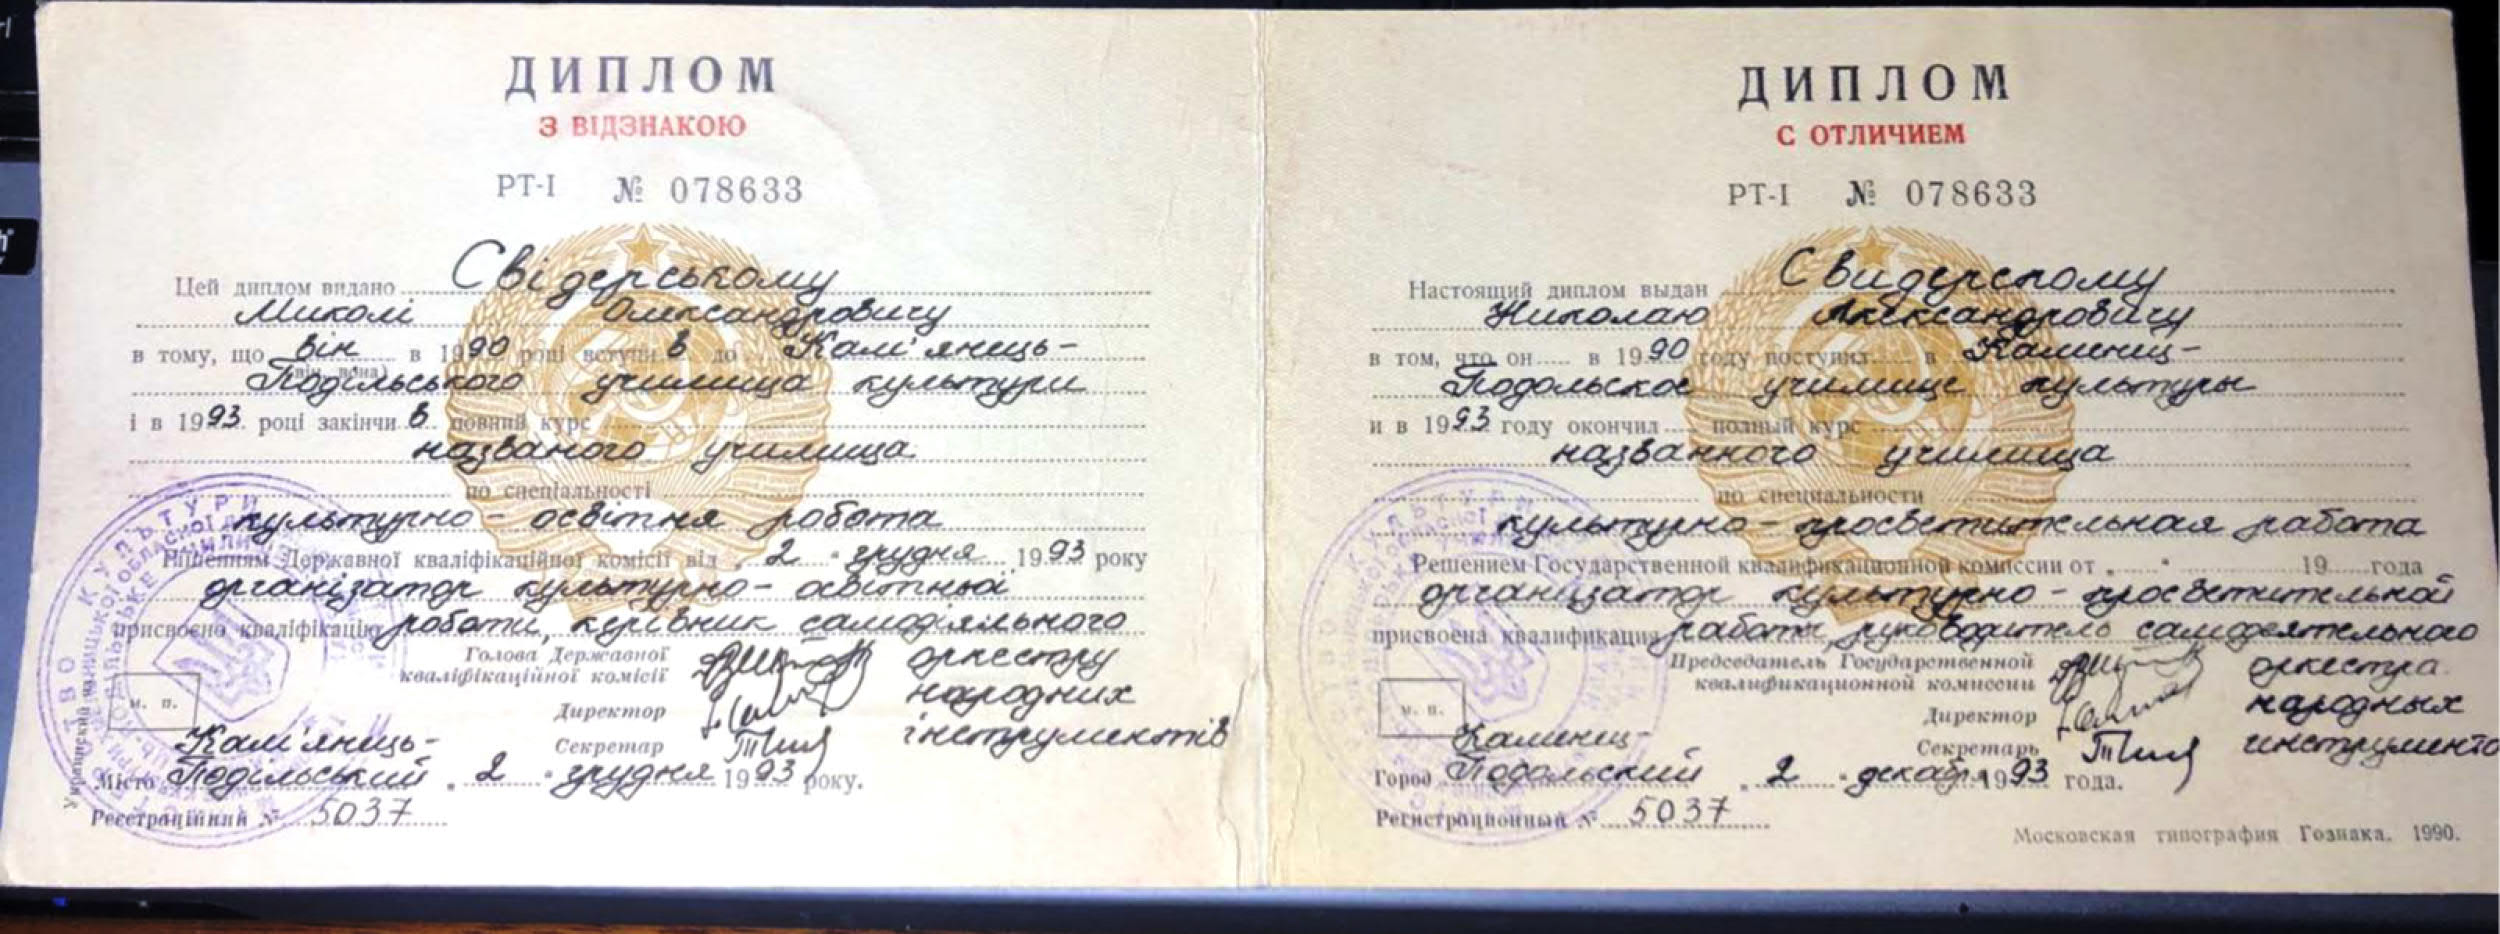 ДИПЛОМ
З ВІДЗНАКОЮ
РТ-I № 078633
Цей диплом видано Свідерському
Миколі Олександровичу
в тому, що він в 1990 році вступив до Кам'янець-
(він, вона)
Подільського училища культури
і в 1993 році закінчив повний курс
названого училища
по спеціальності
культурно-освітня робота
Рішенням Державної кваліфікаційної комісії від „2" грудня 1993 року
організатор культурно-освітньої
присвоєно кваліфікацію роботи, керівник самодіяльного
Голова Державної
кваліфікаційної комісії
оркестру
народних
Директор
Секретар
інструментів
м. п.
Кам'янець-
Місто Подільський „2" грудня 1993 року.
Реєстраційний № 5037
ДИПЛОМ
С ОТЛИЧИЕМ
РТ-I № 078633
Настоящий диплом выдан Свидерскому
Николаю Александровичу
в том, что он в 1990 году поступил в Каменец-
Подольское училище культуры
и в 1993 году окончил полный курс
названного училища
по специальности
культурно-просветительная работа
Решением Государственной квалификационной комиссии от „ " 19 года
организатор культурно-просветительной
присвоена квалификация работы, руководитель самодеятельного
Председатель Государственной
квалификационной комиссии
оркестра
народных
Директор
Секретарь
инструменто
м. п.
Каменец-
Город Подольский „2" декабр 1993 года.
Регистрационный № 5037
Московская типография Гознака. 1990.